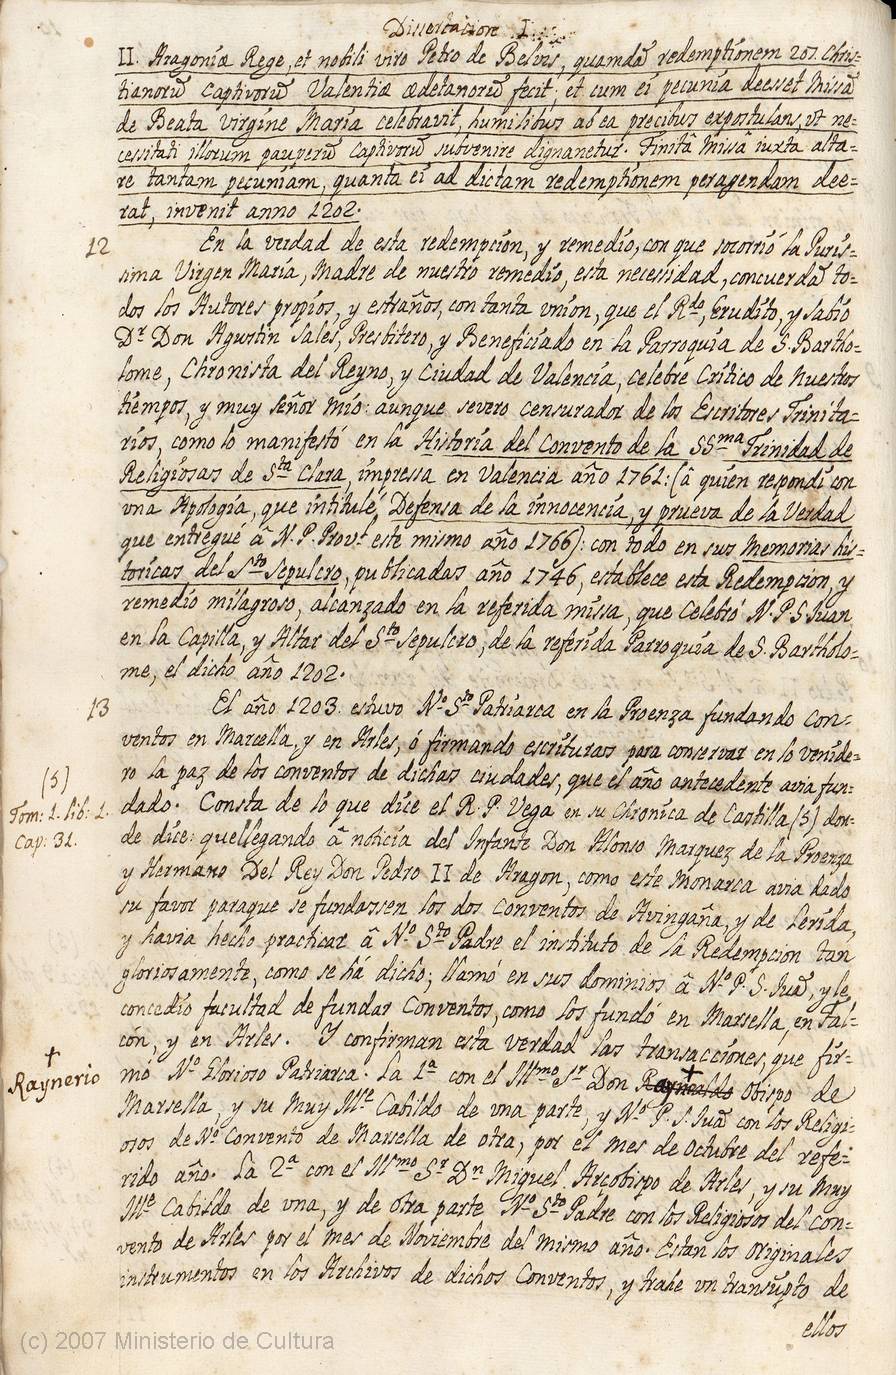 Dissertacion I.
II. Aragoniæ Rege, et nobili viro Petro de Belvis, quamdã redemptionem 207. Chris=
tianorũ Captivorũ Valentiæ ædetanorũ fecit; et cum ei pecunia deesset Missã
de Beata Virgine Maria celebravit, humilibus ab ea precibus expostulans, ut ne=
cessitati illorum pauperũ Captivorũ subvenire dignaretur. Finitâ Missâ iuxta alta=
re tantam pecuniam, quanta ei ad dictam redemptionem peragendam dee=
rat, invenit anno 1202.
12 En la verdad de esta redempcion, y remedio, con que socorriò la Puris=
sima Virgen Maria, Madre de nuestro remedio, esta necessidad, concuerdã to=
dos los Autores propios, y estraños, con tanta union, que el Rdo, Erudito, y Sabio
Dr Don Agustin Sales, Presbitero, y Beneficiado en la Parroquia de S. Bartho=
lome, Chronista del Reyno, y Ciudad de Valencia, celebre Critico de Nuestros
tiempos, y muy Señor mio: aunque severo censurador de los Escritores Trinita=
rios, como lo manifestó en la Historia del Convento de la SSma Trinidad de
Religiosas de Sta Clara, impressa en Valencia año 1761: (â quien respondi con
una Apologia, que intitulé, Defensa de la innocencia, y prueva de la Verdad
que entregué â N. P. Provl este mismo año 1766): con todo en sus Memorias his=
toricas del Sto Sepulcro, publicadas año 1746, establece esta Redempcion, y
remedio milagroso, alcanzado en la referida missa, que Celebró N. P. S. Juan
en la Capilla, y Altar del Sto Sepulcro, de la referida Parroquia de S. Bartholo=
me, el dicho año 1202.
13 El año 1203. estuvo No Sto Patriarca en la Proenza fundando con=
ventos en Marcella, y en Arles, ó firmando escrituras para conservar en lo venide=
ro la paz de los conventos de dichas ciudades, que el año antecedente avia fun=
dado. Consta de lo que dice el R. P. Vega en su Chronica de Castilla (5) don=
(5)
Tom: 1. lib: 1.
Cap: 31.
de dice: que llegando â noticia del Infante Don Alonso Marquez de la Proenza
y Hermano Del Rey Don Pedro II de Aragon, como este Monarca avia dado
su favor paraque se fundassen los dos Conventos de Avingaña, y de Lerida,
y havia hecho practicar â No Sto Padre el instituto de la Redempcion tan
gloriosamente, como se há dicho; llamó en sus dominios â No P. S. Juã, y le
concedio facultad de fundar Conventos, como los fundó en Marsella, en Fal=
cón, y en Arles. Y confirman esta verdad las transacciones, que fir=
mó No Glorioso Patriarca. La 1a con el Illmo Sr Don Obispo de
✝
Raynerio
Marsella, y su Muy Ille Cabildo de una parte, y No P. S. Juã con los Religi=
osos de No Convento de Marsella de otra, por el mes de Octubre del refe=
rido año. La 2a con el Illmo Sr Dn Miguel Arçobispo de Arles, y su Muy
Ille Cabildo de una, y de otra parte No Sto Padre con los Religiosos del Con=
vento de Arles por el mes de Noviembre del mismo año. Estan los originales
instrumentos en los Archivos de dichos Conventos, y trahe un transupto de
ellos
(c) 2007 Ministerio de Cultura